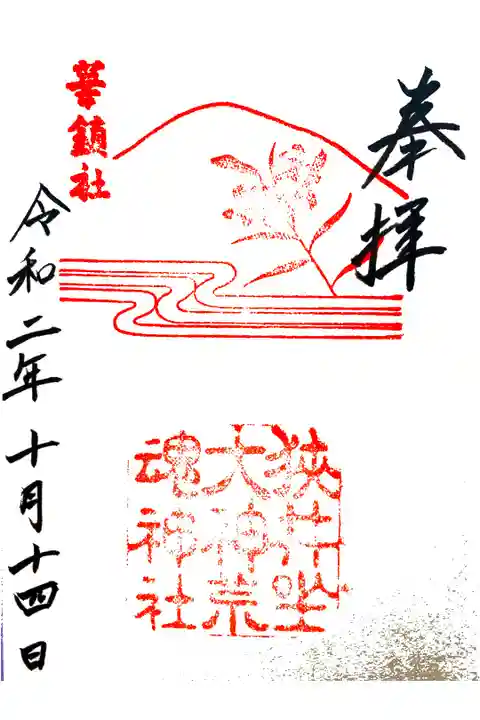 奉拝
華鎮社
狭井坐
大神荒
魂神社
令和二年十月十四日